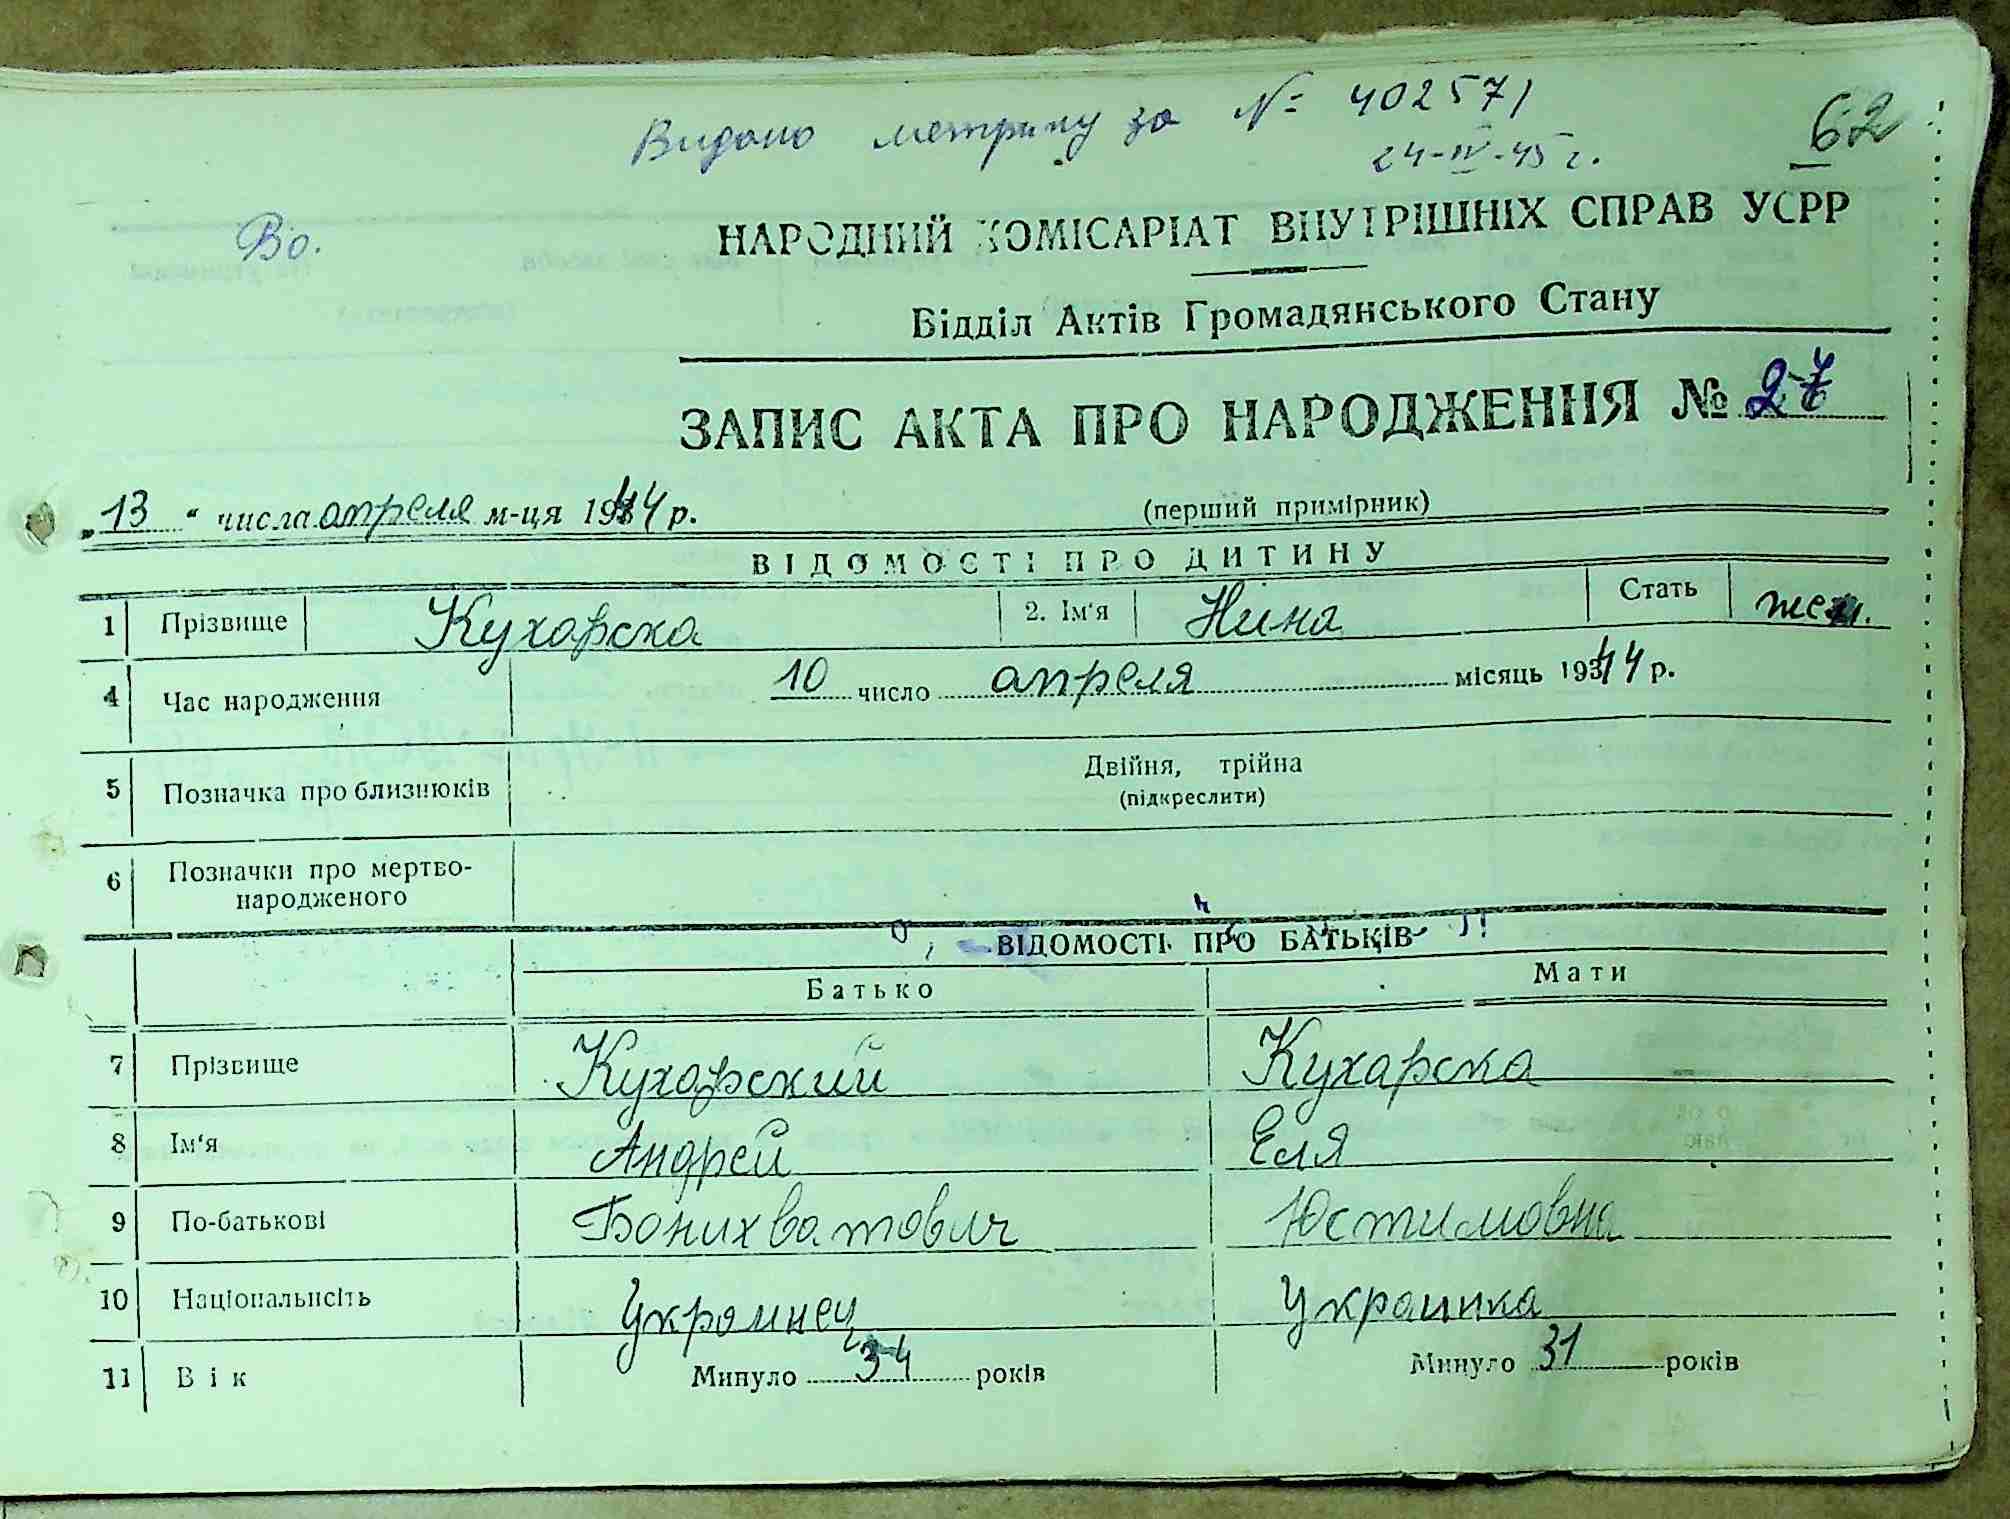 Видано метрику за № 402571
24-IV-45 г.
62
Во.
НАРОДНИЙ КОМІСАРІАТ ВНУТРІШНІХ СПРАВ УСРР
Відділ Актів Громадянського Стану
ЗАПИС АКТА ПРО НАРОДЖЕННЯ № 27
„13“ числа апреля м-ця 1944 р. (перший примірник)
ВІДОМОСТІ ПРО ДИТИНУ
1 Прізвище Кухарска 2. Ім'я Нина Стать жен.
4 Час народження 10 число апреля місяць 1944 р.
5 Позначка про близнюків Двійня, трійна
(підкреслити)
6 Позначки про мертво-
народженого
ВІДОМОСТІ ПРО БАТЬКІВ
Батько Мати
7 Прізвище Кухарский Кухарска
8 Ім'я Андрей Еля
9 По-батькові Бонихватович Юстимовна
10 Національність Украинец Украинка
11 Вік Минуло 34 років Минуло 31 років